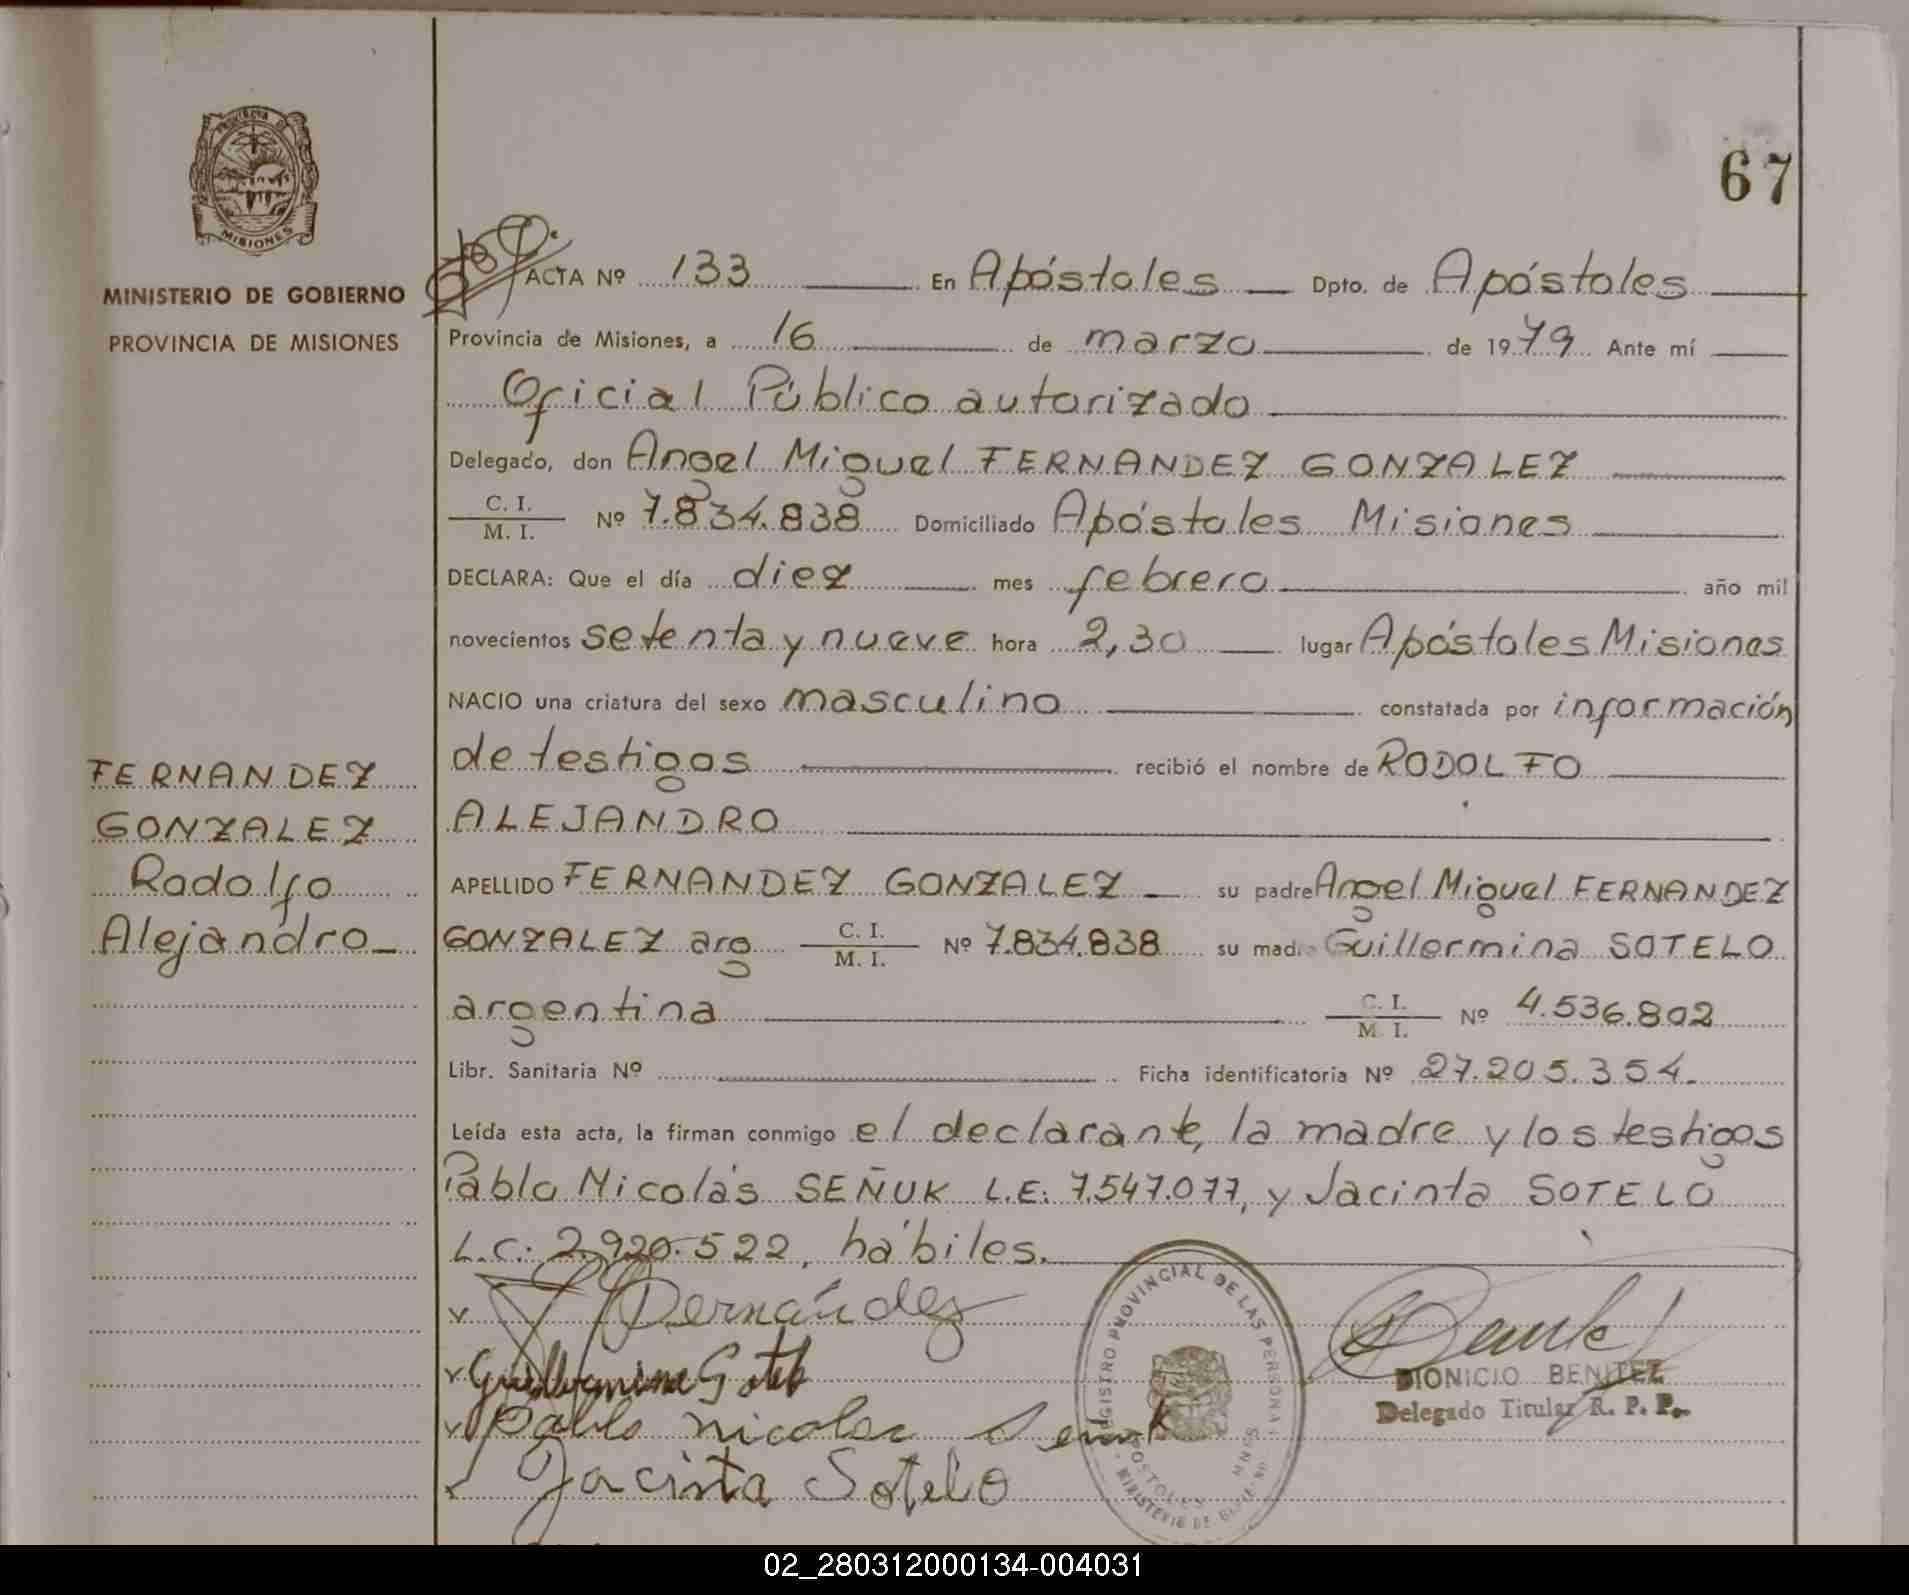 67
PROVINCIA DE
MISIONES
MINISTERIO DE GOBIERNO
PROVINCIA DE MISIONES
FERNANDEZ
GONZALEZ
Rodolfo
Alejandro
ACTA Nº 133 En Apóstoles Dpto. de Apóstoles
Provincia de Misiones, a 16 de marzo de 1979 Ante mí
Oficial Público autorizado
Delegado, don Angel Miguel FERNANDEZ GONZALEZ
C. I.
M. I. Nº 7.834.838 Domiciliado Apóstoles Misiones
DECLARA: Que el día diez mes febrero año mil
novecientos setenta y nueve hora 2,30 lugar Apóstoles Misiones
NACIO una criatura del sexo masculino constatada por información
de testigos recibió el nombre de RODOLFO
ALEJANDRO
APELLIDO FERNANDEZ GONZALEZ su padre Angel Miguel FERNANDEZ
GONZALEZ arg C. I.
M. I. Nº 7.834.838 su madre Guillermina SOTELO
argentina C. I.
M. I. Nº 4.536.802
Libr. Sanitaria Nº Ficha identificatoria Nº 27.205.354.
Leída esta acta, la firman conmigo el declarante, la madre y los testigos
Pablo Nicolás SEÑUK L.E: 7.547.077, y Jacinta SOTELO
L.C: 2.920.522, hábiles.
Fernández
Guillermina Sotelo
Pablo Nicolas Senuk
Jacinta Sotelo
REGISTRO PROVINCIAL DE LAS PERSONAS
APOSTOLES
MISIONES
MINISTERIO DE GOBIERNO
DIONICIO BENITEZ
Delegado Titular R. P. P.
02_280312000134-004031